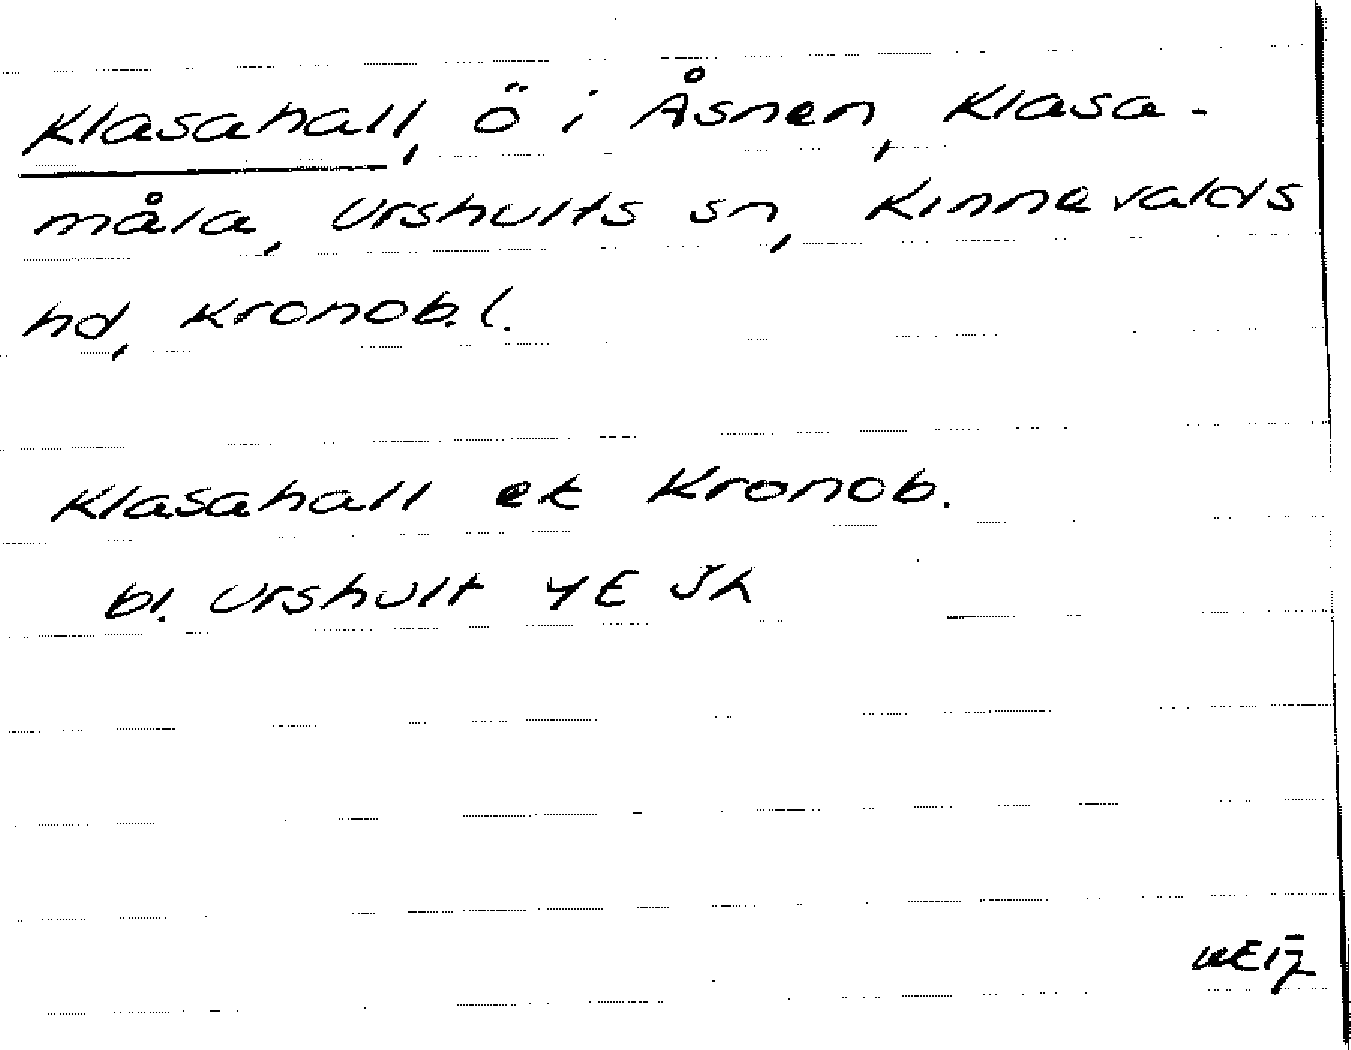 Klasahall, ö i Åsnen, Klasa-
måla, Urshults sn, Kinnevalds
hd, Kronob. l.
Klasahall ek Kronob.
bl. Urshult 4E Jh